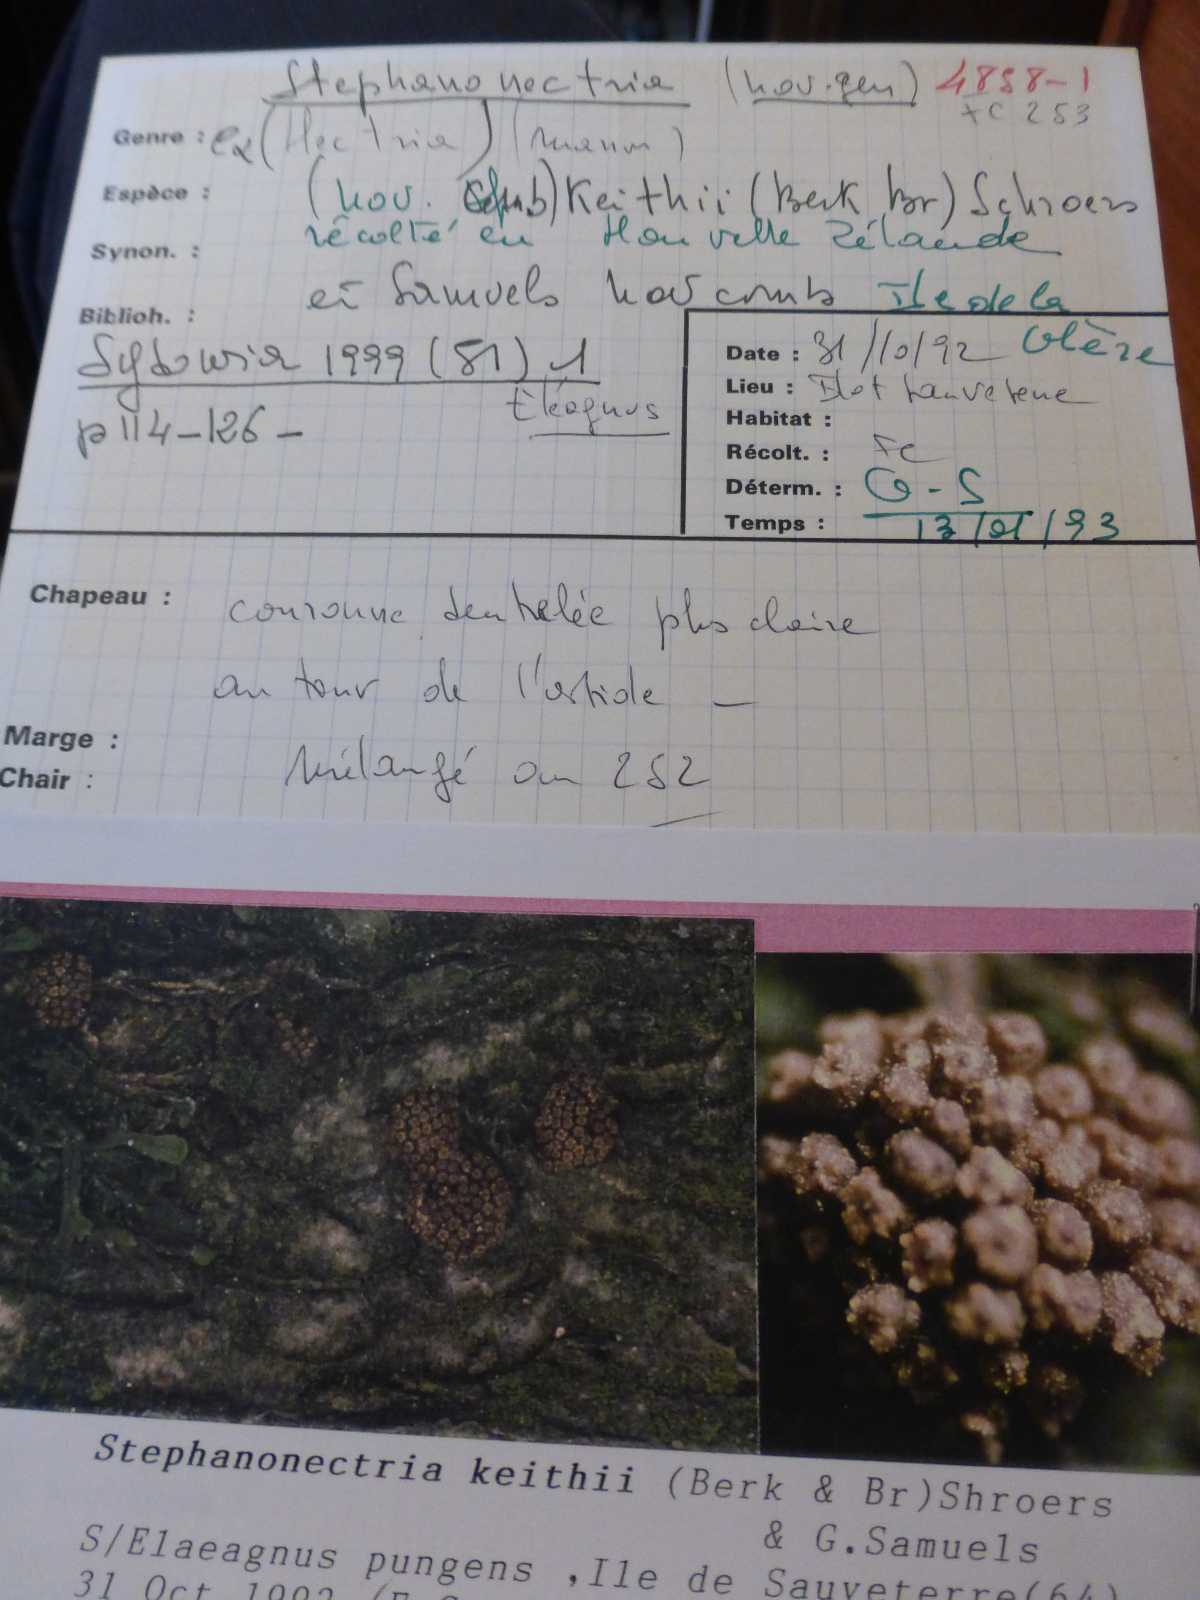 Stephanonectria (nov. gen) 4858-1
FC 253
Genre : ex (Nectria)
Espèce : (nov. comb) Keithii (Berk Br) Schroers
récolté en Nouvelle Zélande
Synon. :
et Samuels nov comb Ile de la
Biblioh. :
Sydowia 1999 (51) 1
Eléagnus
p 114-126 -
Date : 31/10/92
Lieu : Ilot Sauveterre
Habitat :
Récolt. : FC
Déterm. : G-S
Temps : 13/01/93
Chapeau : couronne dentelée plus claire
autour de l'ostiole -
Marge :
Mélangé au 252
Chair :
Stephanonectria keithii (Berk & Br)Shroers
& G.Samuels
S/Elaeagnus pungens ,Ile de Sauveterre(64)
31 Oct 1992